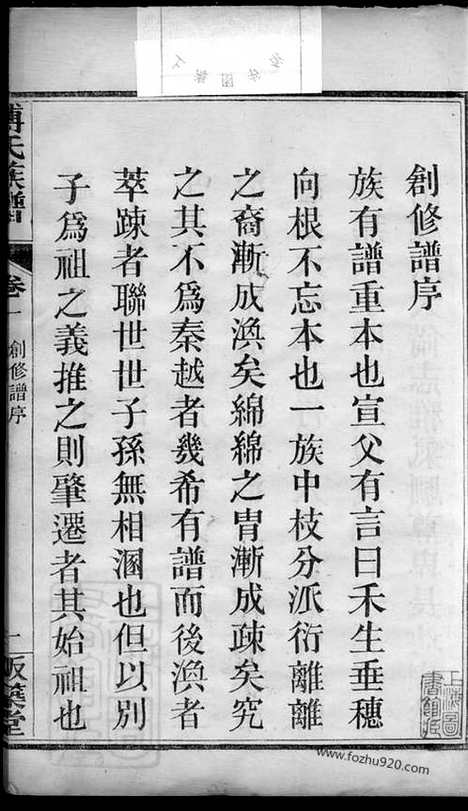 創修譜序
族有譜重本也宣父有言曰禾生垂穗
向根不忘本也一族中枝分派衍離離
之裔漸成渙矣綿綿之冑漸成疎矣究
之其不爲秦越者幾希有譜而後渙者
萃踈者聯世世子孫無相溷也但以別
子爲祖之義推之則肇遷者其始祖也
氏族譜
卷一
創修譜序
一
上海圖
書館藏
www.fozhu920.com